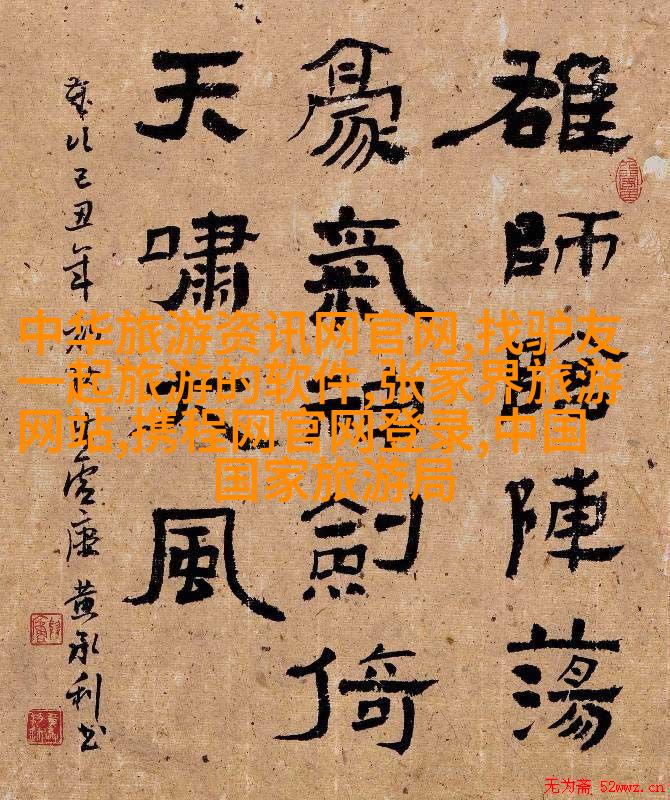 雄師
陣蕩
豪氣
劍倚
天嘯
風
歲次己丑年
黄承利书
中华旅游资讯网官网,找驴友
一起旅游的软件,张家界旅游
网站,携程网官网登录,中国
国家旅游局
无为斋 52wwz.cn